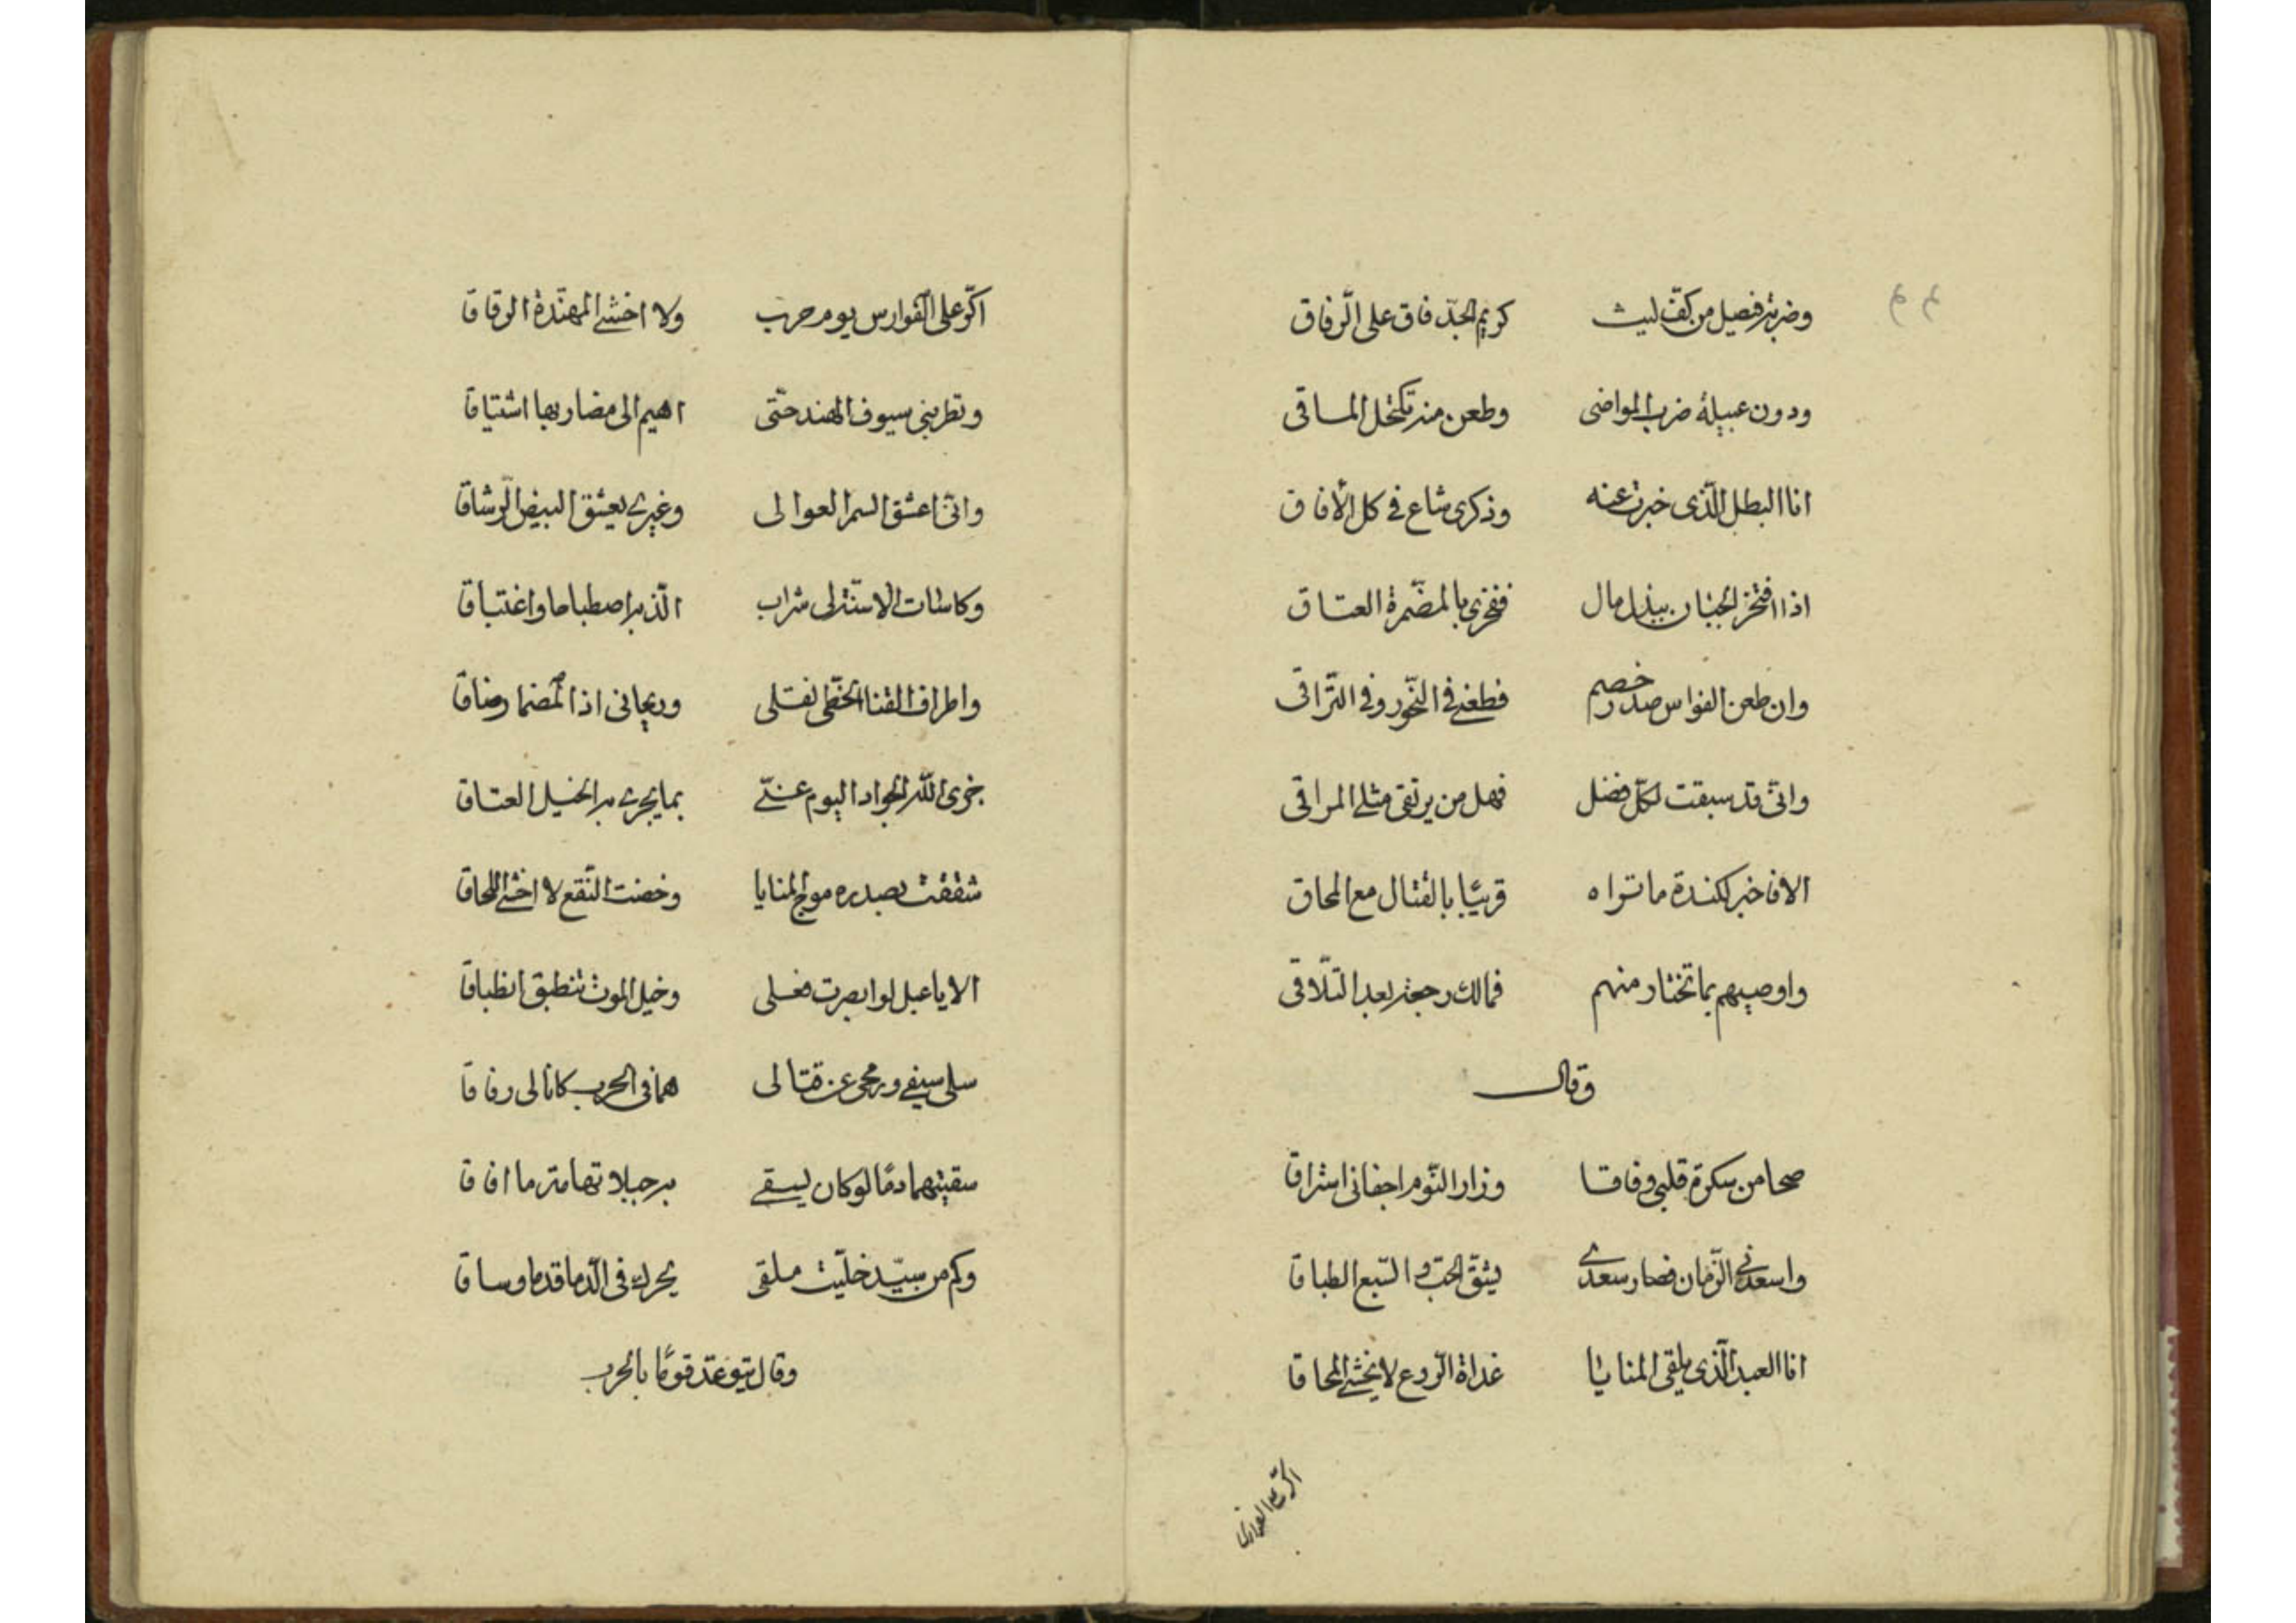 وضربة فيصل من كفّ ليث كريم الجدّ فاق على الرّفاق
ودون عبيلة ضرب المواضى وطعن منه تكتحل المـاقى
انا البطل الّذى خبرت عنه وذكرى شاع فى كل الأفاق
اذا افتخر الجبان ببذل مال ففخرى بالمضمّرة العتاق
وان طعن الفوارس صدر خصم فطعنى فى النّحور وفى التّراقى
وانّى قد سبقت لكلّ فضل فهل من يرتقى مثلى المراقى
الا فاخبر لكندة ما تراه قريبًا بالقتال مع المحاق
واوصيهم بما تختار منهم فمالك رجعة بعد التّلاقى
وقال
صحا من سكرة قلبى وفاقا وزار النّوم اجفانى استراق
واسعدنى الزّمان فصار سعدى يشقّ الحجب والسّبع الطباقا
انا العبد الّذى يلقى المنايا غداة الرّوع لا يخشى المحاقا
اكرّ على الفوارس
اكرّ على الفوارس يوم حرب ولا اخشى المهنّدة الرقاقا
وتطربنى سيوف الهند حتّى اهيم الى مضاربها اشتياقا
وانّى اعشق السمر العوالى وغيرى يعشق البيض الرّشاقا
وكاسات الاسنّة لى شراب الذّ به اصطباحا واغتباقا
واطراف القنا الخطّى نقلى وريحانى اذا المضمار ضاقا
جزى الله الجواد اليوم عنّى بما يجزى به الخيل العتاقا
شققت بصدره موج المنايا وخضت النّقع لا اخشى اللحاقا
الا يا عبل لو ابصرت فعلى وخيل الموت تنطبق انطباقا
سلى سيفى ورمحى عن قتالى هما فى الحرب كانا لى رفاقا
سقيتهما دمًا لو كان يسقى به جبلا تهامة ما افاقا
وكم من سيّد خلّيت ملقى يحرك فى الدّما قدما وساقا
وقال يتوعّد قومًا بالحرب